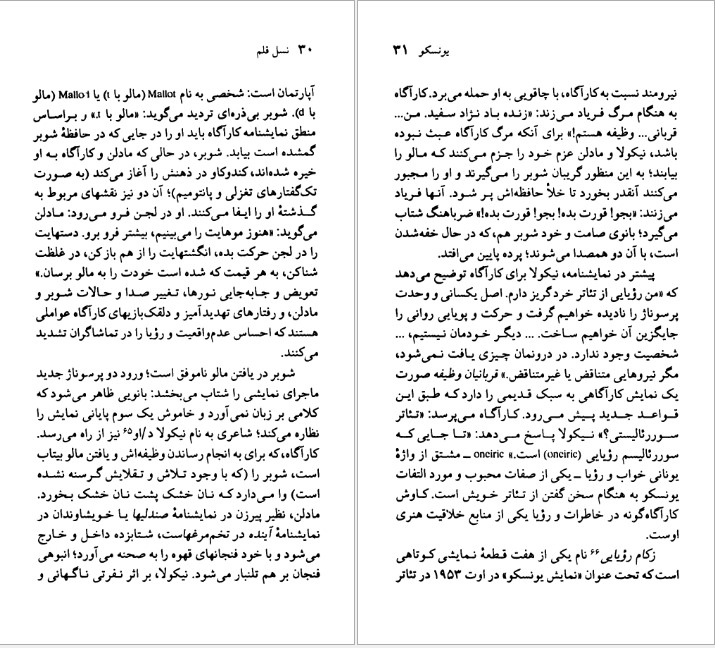 ۳۰ نسل قلم
آپارتمان است: شخصی به نام Mallot (مالو با t) یا Mallo1 (مالو
با d). شوبر بی‌ذره‌ای تردید می‌گوید: «مالو با t.» و براساس
منطق نمایشنامه کارآگاه باید او را در جایی که در حافظهٔ شوبر
گمشده است بیابد. شوبر، در حالی که مادلن و کارآگاه به او
خیره شده‌اند، کندوکاو در ذهنش را آغاز می‌کند (به صورت
تک‌گفتارهای تغزلی و پانتومیم)؛ آن دو نیز نقشهای مربوط به
گذشتهٔ او را ایفا می‌کنند. او در لجن فرو می‌رود: مادلن
می‌گوید: «هنوز موهایت را می‌بینیم، بیشتر فرو برو. دستهایت
را در لجن حرکت بده، انگشتهایت را از هم بازکن، در غلظت
شناکن، به هر قیمت که شده است خودت را به مالو برسان.»
تعویض و جابه‌جایی نورها، تغییر صدا و حالات شوبر و
مادلن، و رفتارهای تهدیدآمیز و دلقک‌بازیهای کارآگاه عواملی
هستند که احساس عدم‌واقعیت و رؤیا را در تماشاگران تشدید
می‌کنند.
شوبر در یافتن مالو ناموفق است؛ ورود دو پرسوناژ جدید
ماجرای نمایشی را شتاب می‌بخشد: بانویی ظاهر می‌شود که
کلامی بر زبان نمی‌آورد و خاموش یک سوم پایانی نمایش را
نظاره می‌کند؛ شاعری به نام نیکولا د/او۶۵ نیز از راه می‌رسد.
کارآگاه، که برای به انجام رساندن وظیفه‌اش و یافتن مالو بیتاب
است، شوبر را (که با وجود تلاش و تقلایش گرسنه نشده
است) وا می‌دارد که نان خشک پشت نان خشک بخورد.
مادلن، نظیر پیرزن در نمایشنامهٔ صندلیها یا خویشاوندان در
نمایشنامهٔ آینده در تخم‌مرغهاست، شتابزده داخل و خارج
می‌شود و با خود فنجانهای قهوه را به صحنه می‌آورد؛ انبوهی
فنجان بر هم تلنبار می‌شود. نیکولا، بر اثر نفرتی ناگهانی و
یونسکو ۳۱
نیرومند نسبت به کارآگاه، با چاقویی به او حمله می‌برد. کارآگاه
به هنگام مرگ فریاد می‌زند: «زنده باد نژاد سفید. من...
قربانی... وظیفه هستم!» برای آنکه مرگ کارآگاه عبث نبوده
باشد، نیکولا و مادلن عزم خود را جزم می‌کنند که مالو را
بیابند؛ به این منظور گریبان شوبر را می‌گیرند و او را مجبور
می‌کنند آنقدر بخورد تا خلأ حافظه‌اش پر شود. آنها فریاد
می‌زنند: «بجو! قورت بده! بجو! قورت بده!» ضرباهنگ شتاب
می‌گیرد؛ بانوی صامت و خود شوبر هم، که در حال خفه‌شدن
است، با آن دو همصدا می‌شوند؛ پرده پایین می‌افتد.
پیشتر در نمایشنامه، نیکولا برای کارآگاه توضیح می‌دهد
که «من رؤیایی از تئاتر خردگریز دارم. اصل یکسانی و وحدت
پرسوناژ را نادیده خواهیم گرفت و حرکت و پویایی روانی را
جایگزین آن خواهیم ساخت. ... دیگر خودمان نیستیم، ...
شخصیت وجود ندارد. در درونمان چیزی یافت نمی‌شود،
مگر نیروهایی متناقض یا غیرمتناقض.» قربانیان وظیفه صورت
یک نمایش کارآگاهی به سبک قدیمی را دارد که طبق این
قواعد جدید پیش می‌رود. کارآگاه می‌پرسد: «تئاتر
سوررئالیستی؟» نیکولا پاسخ می‌دهد: «تا جایی که
سوررئالیسم رؤیایی (oneiric) است.» oneiric ـ مشتق از واژهٔ
یونانی خواب و رؤیا ـ یکی از صفات محبوب و مورد التفات
یونسکو به هنگام سخن گفتن از تئاتر خویش است. کاوش
کارآگاه‌گونه در خاطرات و رؤیا یکی از منابع خلاقیت هنری
اوست.
زکام رؤیایی۶۶ نام یکی از هفت قطعهٔ نمایشی کوتاهی
است که تحت عنوان «نمایش یونسکو» در اوت ۱۹۵۳ در تئاتر